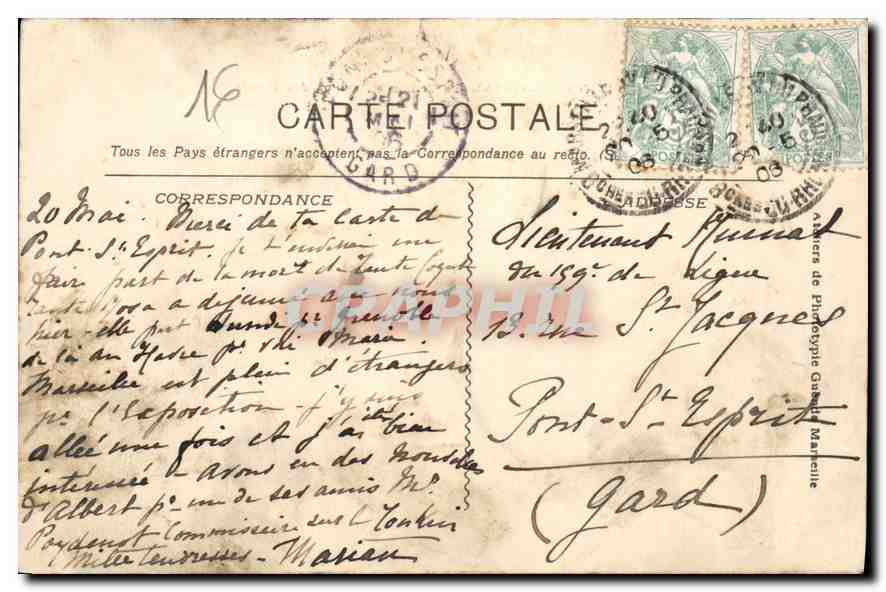 16
CARTE POSTALE
Tous les Pays étrangers n'acceptent pas la Correspondance au recto.
CORRESPONDANCE
ADRESSE
20 Mai. Merci de ta carte de
Pont-St-Esprit. je t'
faire part de la mort de tante
tante Rosa a déjeuné avec nous
hier - elle part lundi pr Grenoble
de là au Havre pr voir Marie.
Marseille est plein d'étrangers
pr l'Exposition - j'y suis
allée une fois et j'ai été bien
intéressée - Avons eu des nouvelles
d'Albert pr un de ses amis Mr
Poydenot Commissaire sur le Tonkin
Mille tendresses - Marian
Lieutenant
du 159e de Ligne
13. rue St. Jacques
Pont-St-Esprit
(Gard)
Ateliers de Phototypie Guende Marseille
GARD
21
MAI
POSTES
CPAPHIL